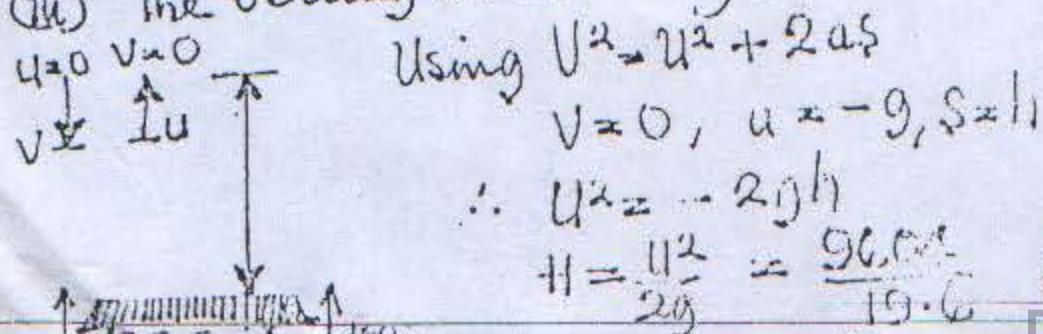 (iii) The
u=0 V=0
V u
Using V² = U² + 2as
V = 0, u = -9, S = h
∴ U² = - 2gh
H = U²/2g = /19.6